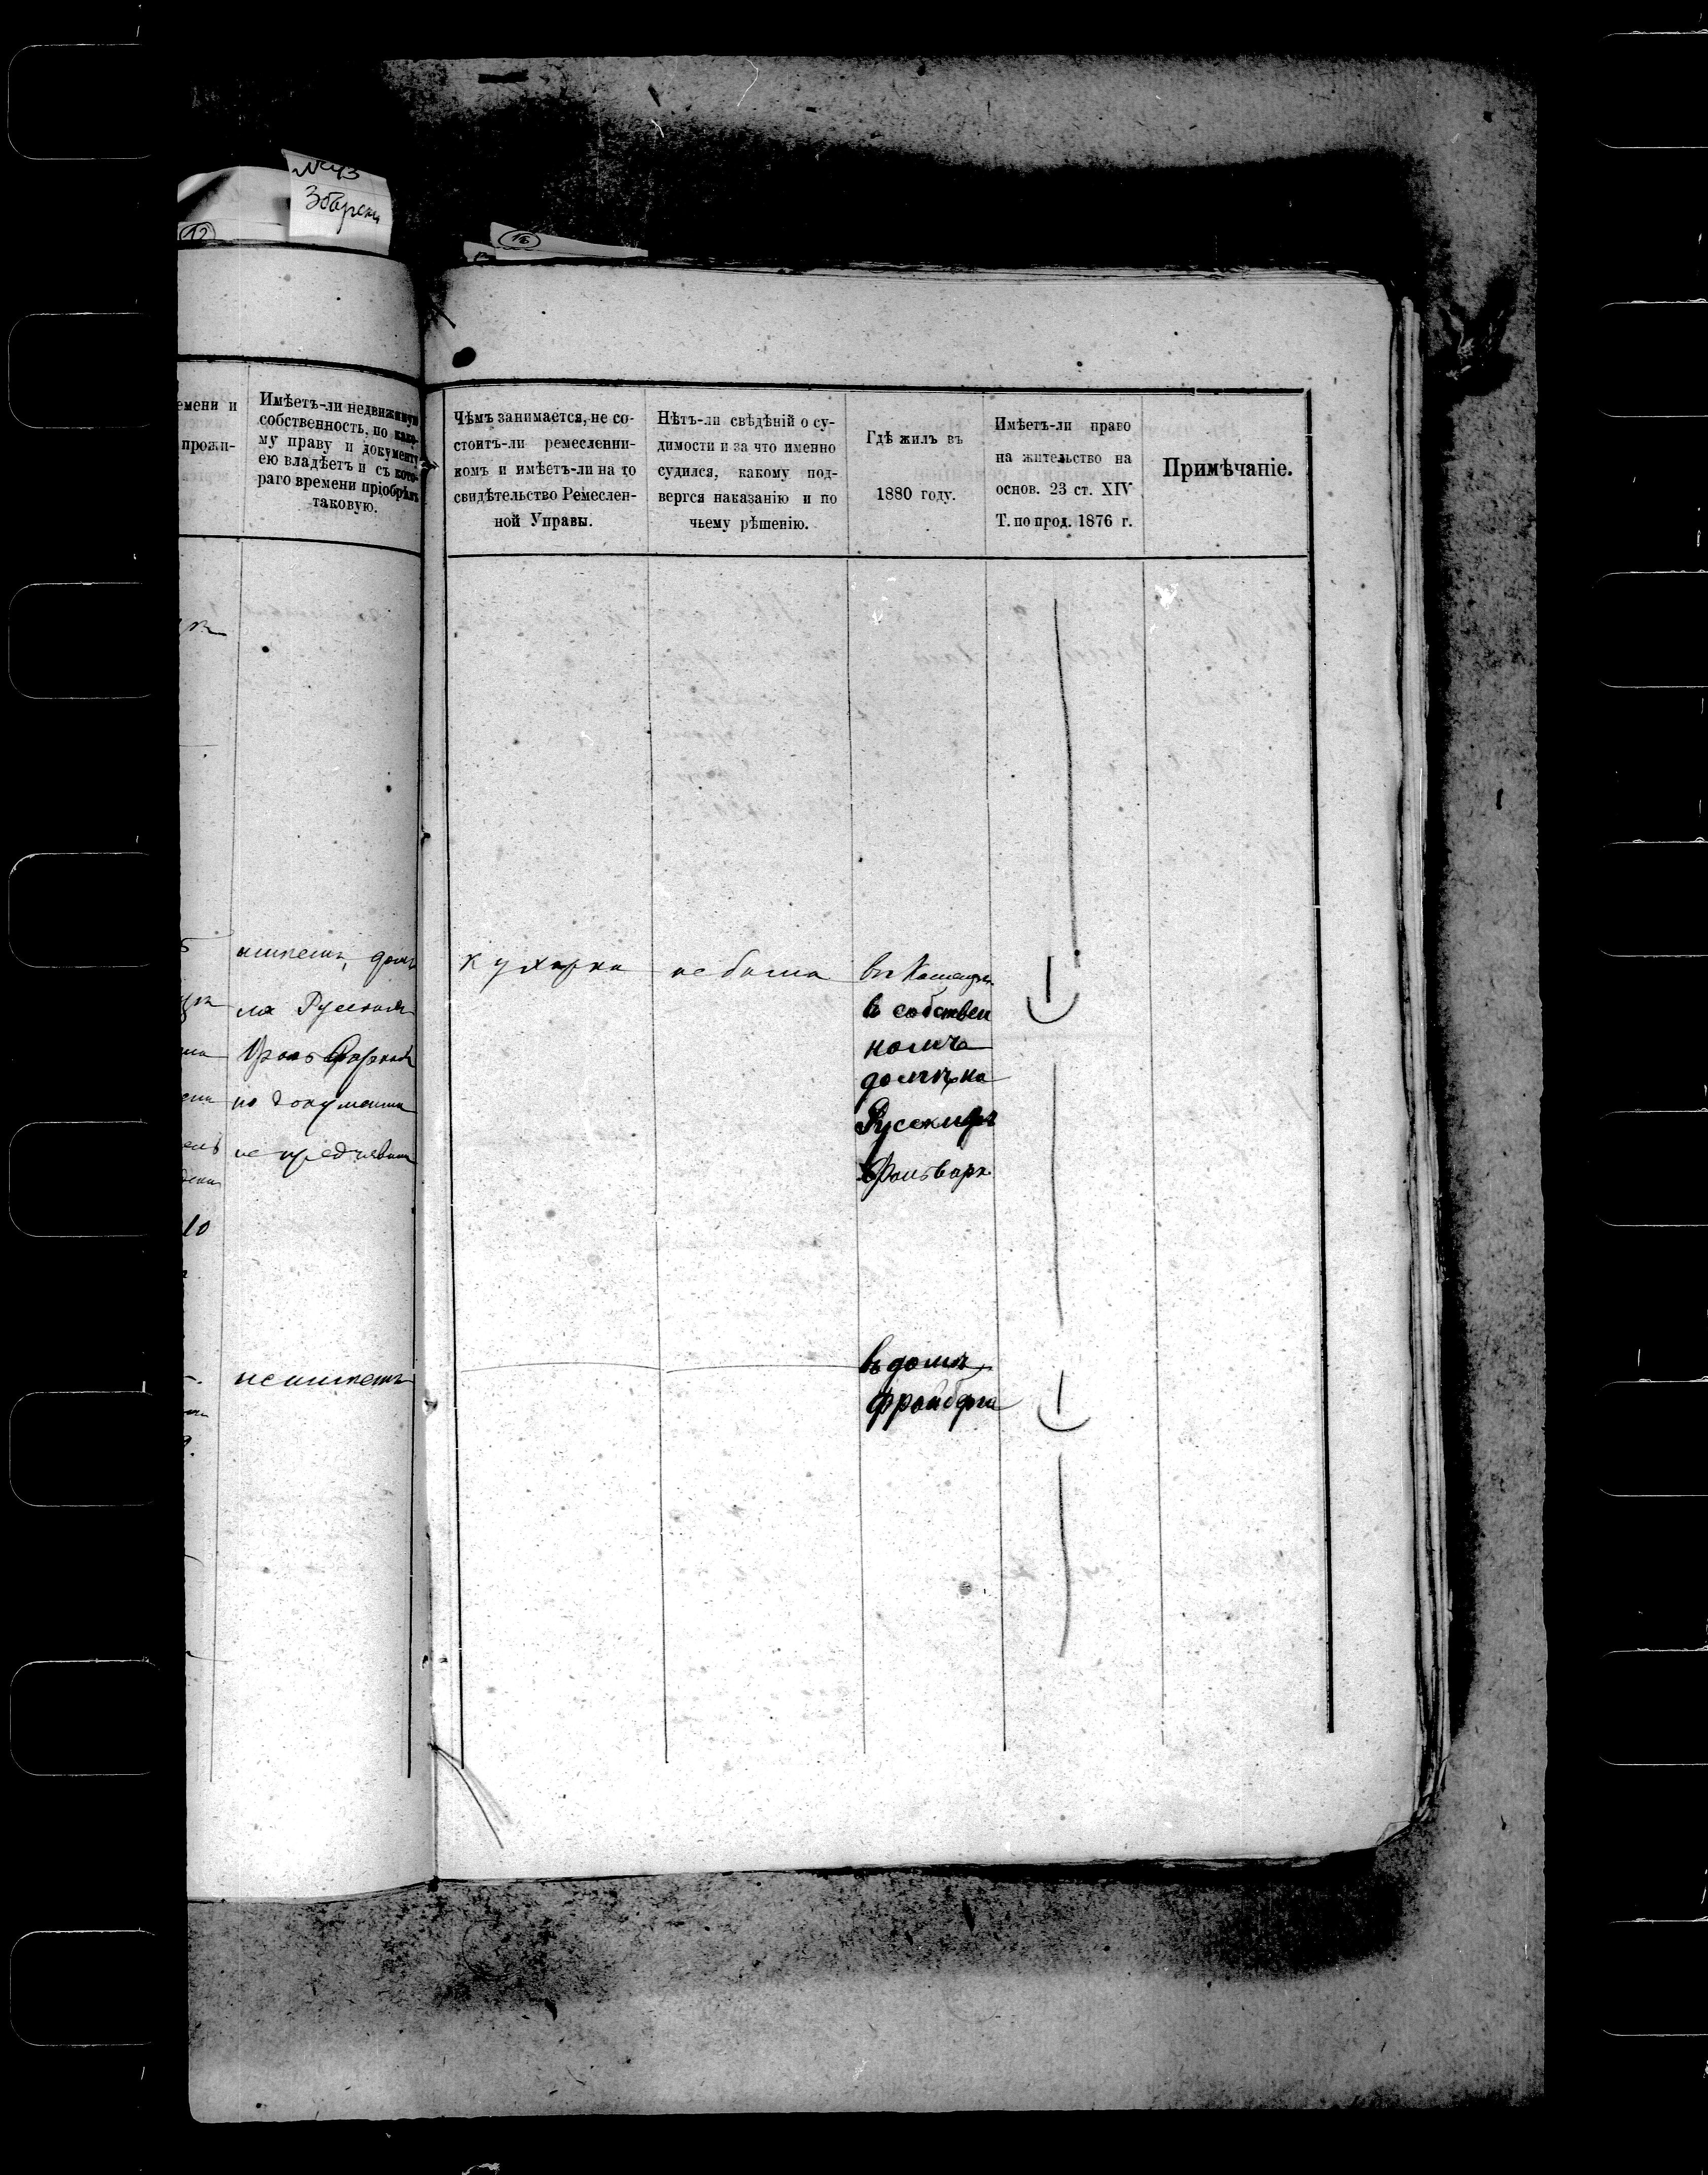 Збарски
12
18
емени и
прожи-
Имѣетъ-ли недвижимую
собственность, по како-
му праву и документу
ею владѣетъ и съ кото-
раго времени пріобрѣлъ
таковую.
Чѣмъ занимается, не со-
стоитъ-ли ремесленни-
комъ и имѣетъ-ли на то
свидѣтельство Ремеслен-
ной Управы.
Нѣтъ-ли свѣдѣній о су-
димости и за что именно
судился, какому под-
вергся наказанію и по
чьему рѣшенію.
Гдѣ жилъ въ
1880 году.
Имѣетъ-ли право
на жительство на
основ. 23 ст. XIV
Т. по прод. 1876 г.
Примѣчаніе.
имѣетъ, домъ
на Русскихъ
но документа
не предъявила
10
не имѣетъ
кухарка
не была
въ
въ собствен
номъ
домѣ на
Русскихъ
Фольварк
въ домѣ
Фройберга